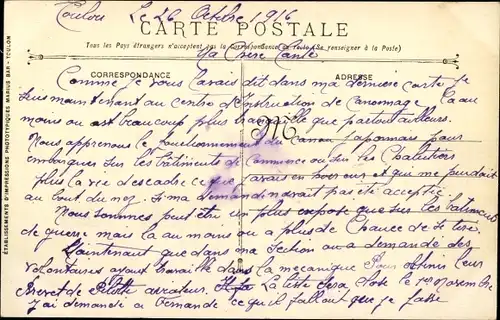 Toulon Le 26 Octobre 1916
CARTE POSTALE
Tous les Pays étrangers n'acceptent pas la Correspondance au recto (Se renseigner à la Poste)
Ma Chère Tante
CORRESPONDANCE
ADRESSE
Comme je vous l'avais dit dans ma dernière carte je
suis maintenant au centre d'instruction de Canonnage. La au
moins on est beaucoup plus tranquille que partout ailleurs.
M
Nous apprenons le fonctionnement du Canon Japonnais pour
embarquer sur les bâtiments de Commerce ou sur les Chalutiers
plus la vie d'escadre ce que avais en horreur et qui me pendait
au bout du nez. Si ma demande n'avait pas été acceptée
Nous sommes peut être un plus exposé que sur les bateaux
de guerre mais la au moins on a plus de Chance de
Maintenant que dans ma section on a demandé des
volontaires ayant travaillé dans la mécanique Pour obtenir leur
Brevet de Pilote aviateur. La liste sera close le 1er Novembre
J'ai demandé a ce qu'il fallait que je fasse
ÉTABLISSEMENTS D'IMPRESSIONS PHOTOTYPIQUES, MARIUS BAR - TOULON